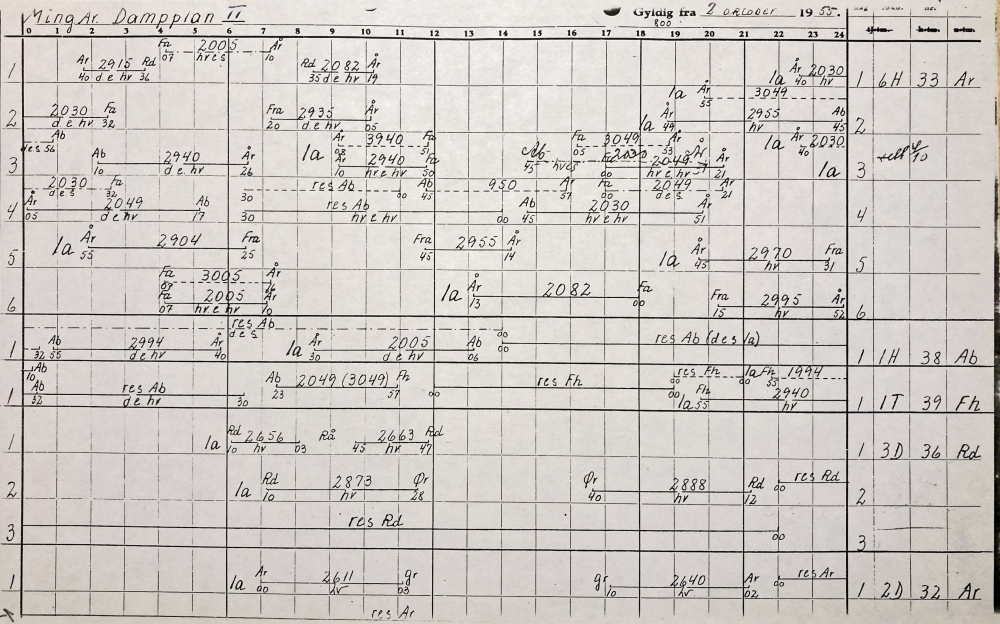 Ming Ar. Dampplan II Gyldig fra 2 oktober 1955.
800
0 1 2 3 4 5 6 7 8 9 10 11 12 13 14 15 16 17 18 19 20 21 22 23 24
Fa 2005 År
07 hves 10
1 Ar 2915 Rd Rd 2082 Ar la Ar 3049 22a Ar 2030 1 6H 33 Ar
40 de hv 36 35 de hv 19 55 40 hv
2 2030 Fa Fra 2935 År la År 2955 Ab 2
de hv 32 20 de hv 05 49 hv 45
Ab År 3940 Fa Fa 3049 År la År 2030
des 56 08 51 05 53 40
3 Ab 2940 År la År 2940 Fa 2049 År la 3
10 de hv 26 10 hv e hv 50 00 hv e hv 21
2030 Fa res Ab Ab 950 År Fa 2049 År
des 32 30 00 45 57 00 des 21
4 År 2049 Ab res Ab Ab 2030 År 4
05 de hv 17 30 hv e hv 00 45 hv e hv 51
5 la År 2904 Fra Fra 2955 År la År 2970 Fra 5
55 25 45 14 45 hv 31
Fa 3005 År
07 16
6 Fa 2005 År la År 2082 Fa Fra 2995 År 6
07 hv e hv 10 13 00 15 hv 52
res Ab
des 00
1 Ab 2994 Ab la År 2005 Ab res Ab (des la) 1 1H 38 Ab
32 55 de hv 40 30 hv 06 00
Ab res Fh la Fh 1994
10 00 00 55
1 Ab res Ab Ab 2049 (3049) Fh res Fh la Fh 2940 1 1T 39 Fh
32 de hv 30 23 57 00 00 55 hv
1 la Rd 2656 Rå 2663 Rd 1 3D 36 Rd
10 hv 03 45 hv 47
2 la Rd 2873 Ør Ør 2888 Rd res Rd 2
10 hv 28 40 hv 12 00
3 res Rd 3
00
1 la Ar 2611 gr gr 2640 Ar res Ar 1 2D 32 Ar
00 hv 03 10 hv 02 00
res Ar